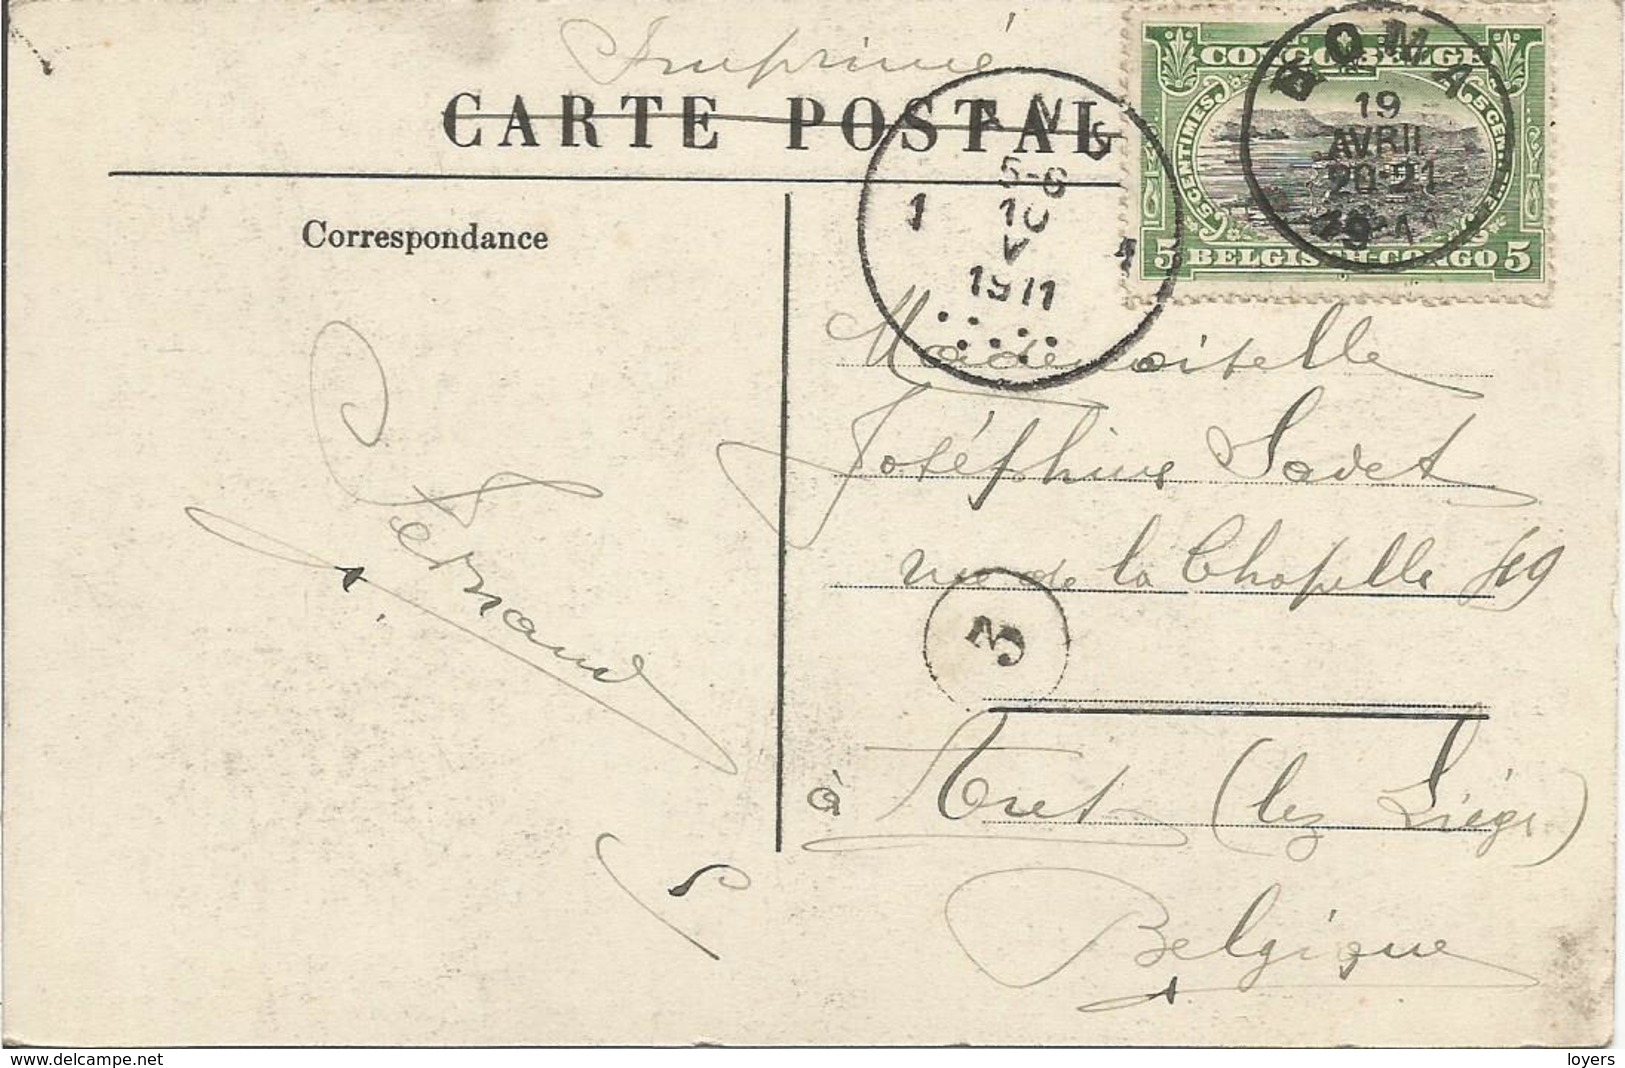 Imprimé
CARTE POSTAL
CONGO BELGE
5 CENTIMES
5 BELGISCH-CONGO 5
BOMA
19
AVRIL
20-21
ANS
5-6
10
V
1911
1 1
Correspondance
Fernand
Mademoiselle
Joséphine
rue de la Chapelle 49
3
à (lez Liége)
Belgique
www.delcampe.net
loyers